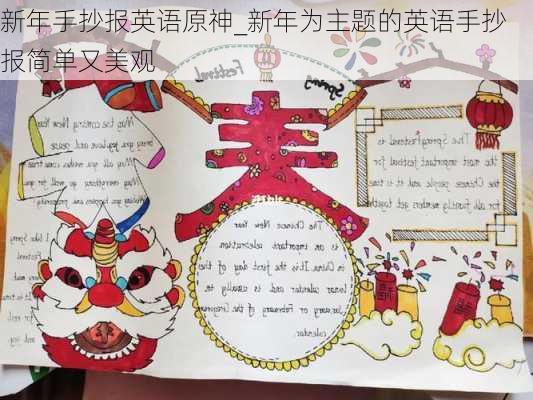 新年手抄报英语原神_新年为主题的英语手抄
报简单又美观
Spring
Festival
春
May the coming New Year
bring you joy, love and peace.
May all your wishes come true
The Spring Festival is
the most important festival for
the Chinese people and it is time
for all family members get together
The Chinese New Year
is an important celebration
in China. It is the first day of the
lunar calendar and is usually in
January or February of the Gregorian
calendar.
I like Spring
Festival